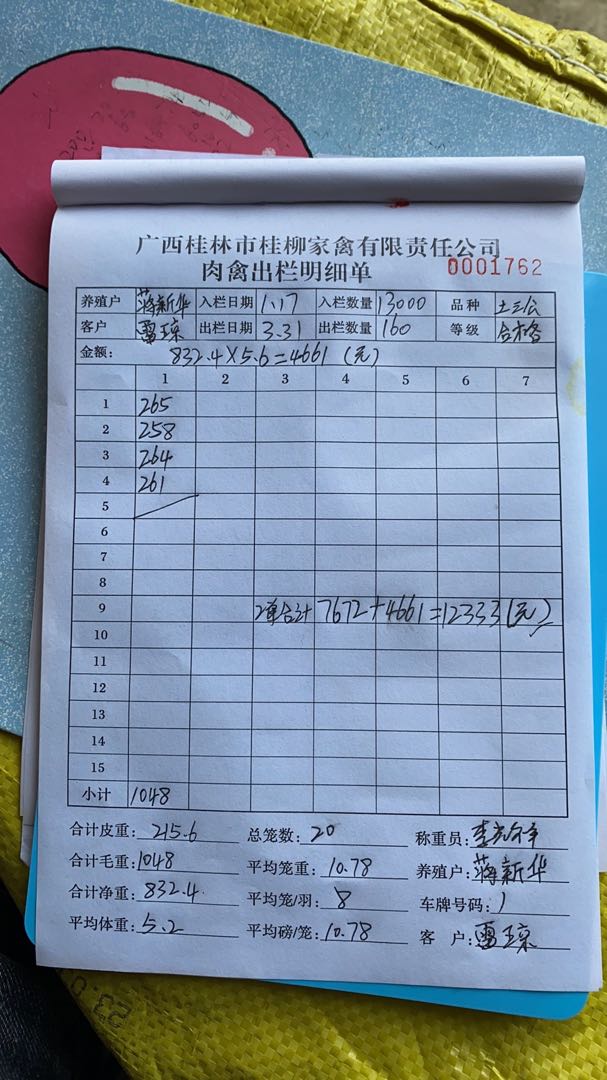 广西桂林市桂柳家禽有限责任公司
肉禽出栏明细单 0001762
养殖户 蒋新华 入栏日期 1.17 入栏数量 13000 品种 土三公
客户 雷琼 出栏日期 3.31 出栏数量 160 等级 合格
金额: 832.4×5.6=4661(元)
1 2 3 4 5 6 7
1 265
2 258
3 264
4 261
5
6
7
8
9 2单合计 7672+4661=12333(元)
10
11
12
13
14
15
小计 1048
合计皮重: 215.6 总笼数: 20 称重员:
合计毛重: 1048 平均笼重: 10.78 养殖户: 蒋新华
合计净重: 832.4 平均笼/羽: 8 车牌号码: 1
平均体重: 5.2 平均磅/笼: 10.78 客 户: 雷琼